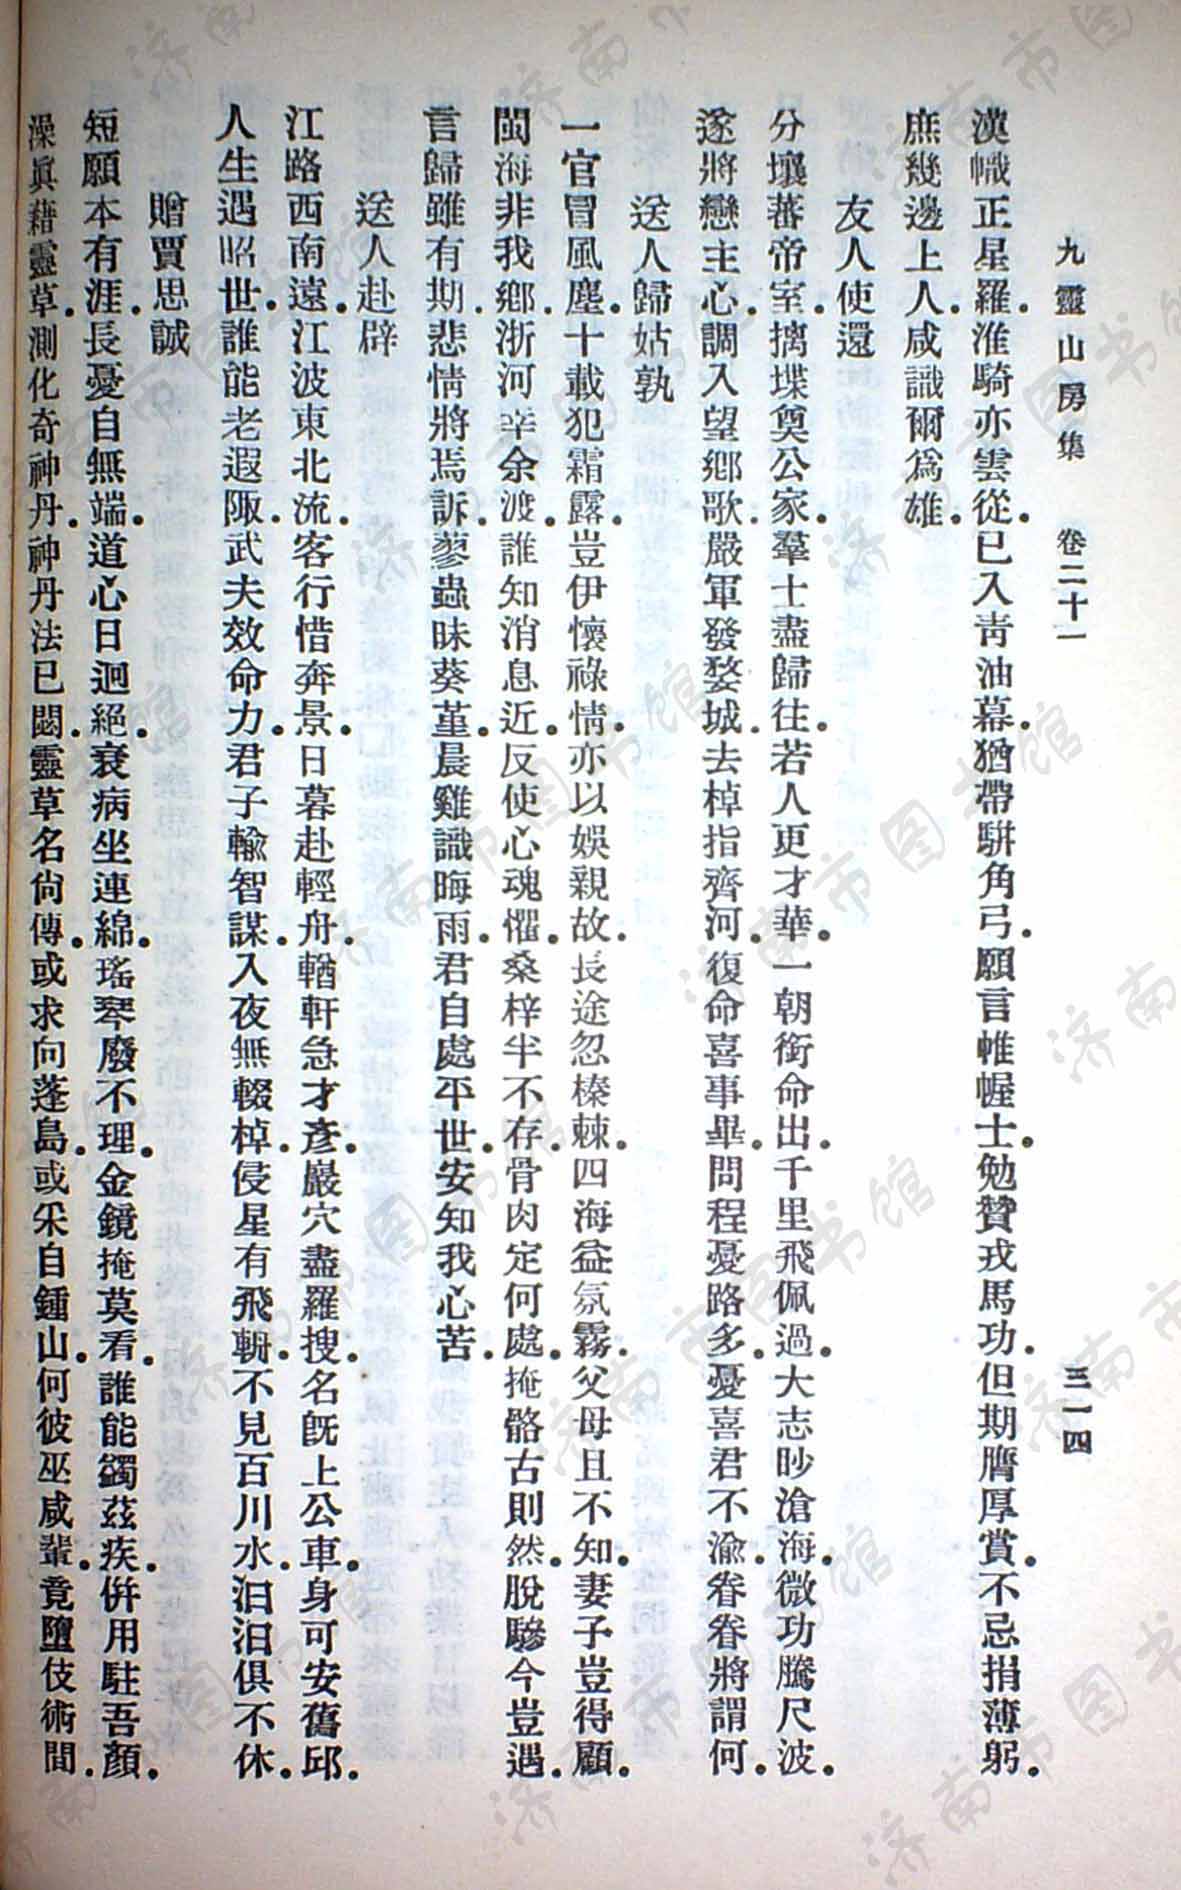 九靈山房集　卷二十一　三一四
漢幟正星羅．淮騎亦雲從．已入靑油幕．猶帶騂角弓．願言帷幄士．勉贊戎馬功．但期膺厚賞．不忌捐薄躬．
庶幾邊上人．咸識爾爲雄．
友人使還
分壤蕃帝室．摛堞奠公家．羣士盡歸往．若人更才華．一朝銜命出．千里飛佩過．大志眇滄海．微功騰尺波．
遂將戀主心．調入望鄉歌．嚴軍發婺城．去棹指齊河．復命喜事畢．問程憂路多．憂喜君不渝．眷眷將謂何．
送人歸姑孰
一官冒風塵．十載犯霜露．豈伊懷祿情．亦以娛親故．長途忽榛棘．四海益氛霧．父母且不知．妻子豈得顧．
閩海非我鄉．浙河幸余渡．誰知消息近．反使心魂懼．桑梓半不存．骨肉定何處．掩骼古則然．脫驂今豈遇．
言歸雖有期．悲情將焉訴．蓼蟲昧葵堇．晨雞識晦雨．君自處平世．安知我心苦．
送人赴辟
江路西南遠．江波東北流．客行惜奔景．日暮赴輕舟．輶軒急才彥．巖穴盡羅搜．名旣上公車．身可安舊邱．
人生遇昭世．誰能老遐陬．武夫效命力．君子輸智謀．入夜無輟棹．侵星有飛輈．不見百川水．汨汨俱不休．
贈賈思誠
短願本有涯．長憂自無端．道心日迴絕．衰病坐連綿．瑤琴廢不理．金鏡掩莫看．誰能蠲茲疾．倂用駐吾顏．
澡眞藉靈草．測化奇神丹．神丹法已閟．靈草名尙傳．或求向蓬島．或采自鍾山．何彼巫咸輩．竟墮伎術間．